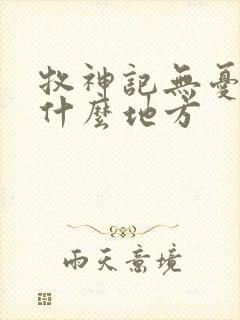 牧神記無憂
什麼地方
雨天意境